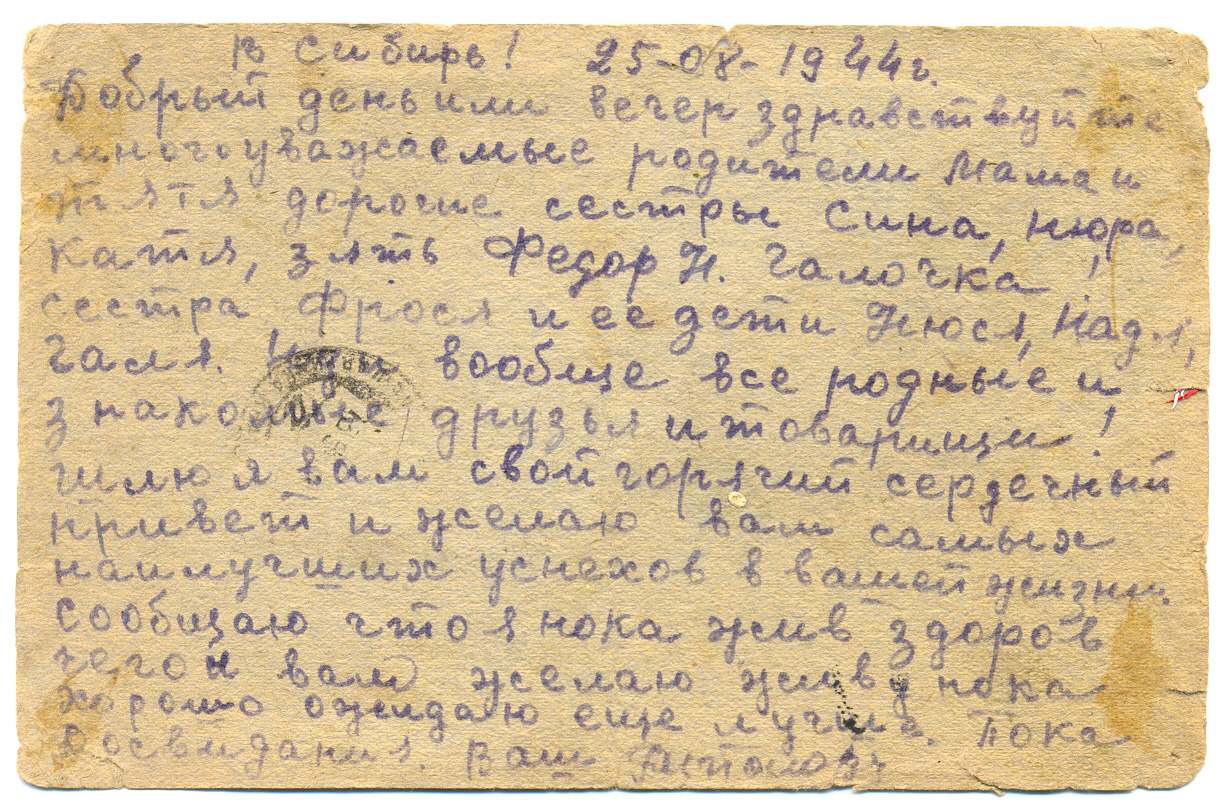 В Сибирь! 25-08-1944г.
Добрый день или вечер здравствуйте
многоуважаемые родители Мама и
тятя дорогие сестры Сина, Нюра,
Катя, зять Федор Н. Галочка!
сестра Фрося и ее дети Нюся, Надя,
Галя. Ну и вообще все родные и
знакомые друзья и товарищи!
шлю я вам свой горячий сердечный
привет и желаю вам самых
наилучших успехов в вашей жизни.
сообщаю что я пока жив здоров
чего и вам желаю живу пока
хорошо ожидаю еще лучше. Пока
Досвидания. Ваш